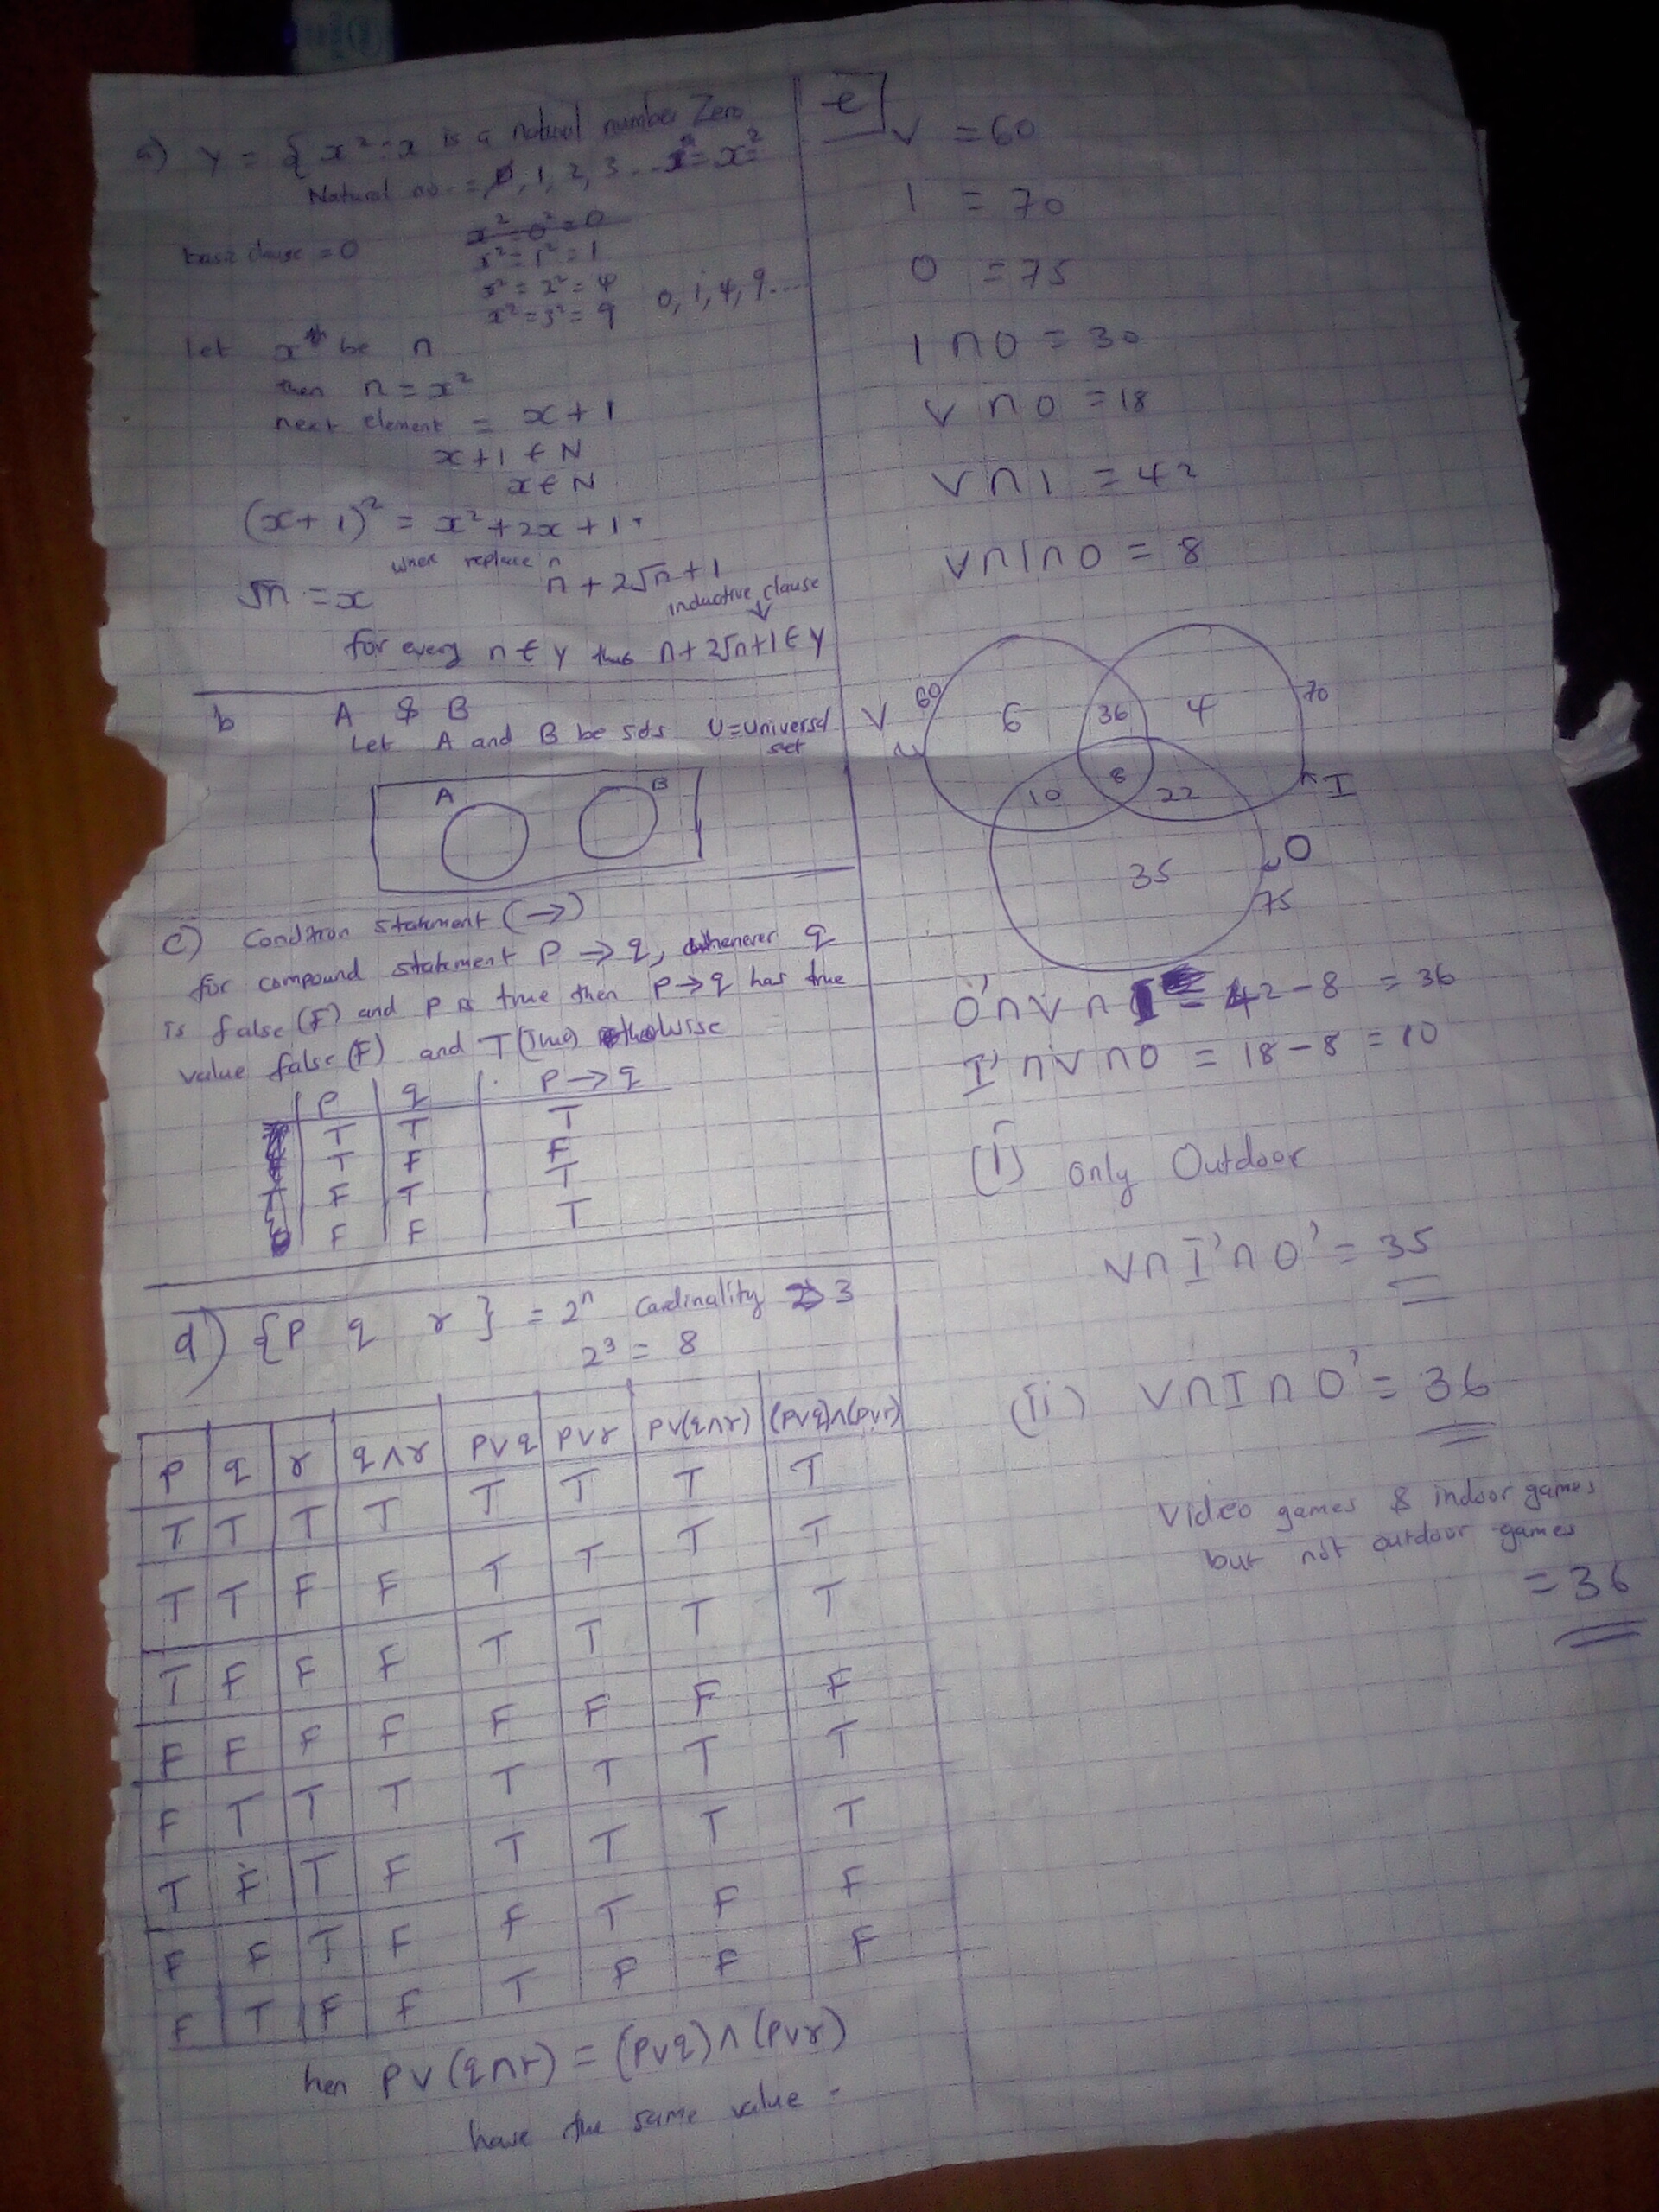 a) Y = { x² : x is a natural number Zero
Natural no. = 0, 1, 2, 3 ... x²
basic clause = 0
x² = 0² = 0
x² = 1² = 1
x² = 2² = 4
x² = 3² = 9    0, 1, 4, 9 ....
Let x be n
then n = x²
next element = x + 1
x + 1 ∈ N
x ∈ N
(x + 1)² = x² + 2x + 1.
when replace n
√n = x    n + 2√n + 1
inductive clause
for every n ∈ Y thus n + 2√n + 1 ∈ Y
b    A & B
Let A and B be sets    U = universal
set
A    B
c) Condition statement (→)
for compound statement P → q, whenever q
is false (F) and p is true then p → q has true
value false (F) and T (True) otherwise
P | q | P → q
T | T | T
T | F | F
F | T | T
F | F | T
d) {P q r} = 2ⁿ Cardinality 3
2³ = 8
P | q | r | q ∧ r | P ∨ q | P ∨ r | P ∨ (q ∧ r) | (P ∨ q) ∧ (P ∨ r)
T | T | T | T | T | T | T | T
T | T | F | F | T | T | T | T
T | F | F | F | T | T | T | T
F | F | F | F | F | F | F | F
F | T | T | T | T | T | T | T
T | F | T | F | T | T | T | T
F | F | T | F | F | T | F | F
F | T | F | F | T | F | F | F
hen P ∨ (q ∩ r) = (P ∨ q) ∧ (P ∨ r)
have the same value -
e
V = 60
I = 70
O = 75
I ∩ O = 30
V ∩ O = 18
V ∩ I = 42
V ∩ I ∩ O = 8
V 60    6    36    4    70
10    8    22    I
35    O
75
O' ∩ V ∩ I = 42 - 8 = 36
I' ∩ V ∩ O = 18 - 8 = 10
(i) Only Outdoor
V ∩ I' ∩ O' = 35
(ii) V ∩ I ∩ O' = 36
Video games & indoor games
but not outdoor games
= 36